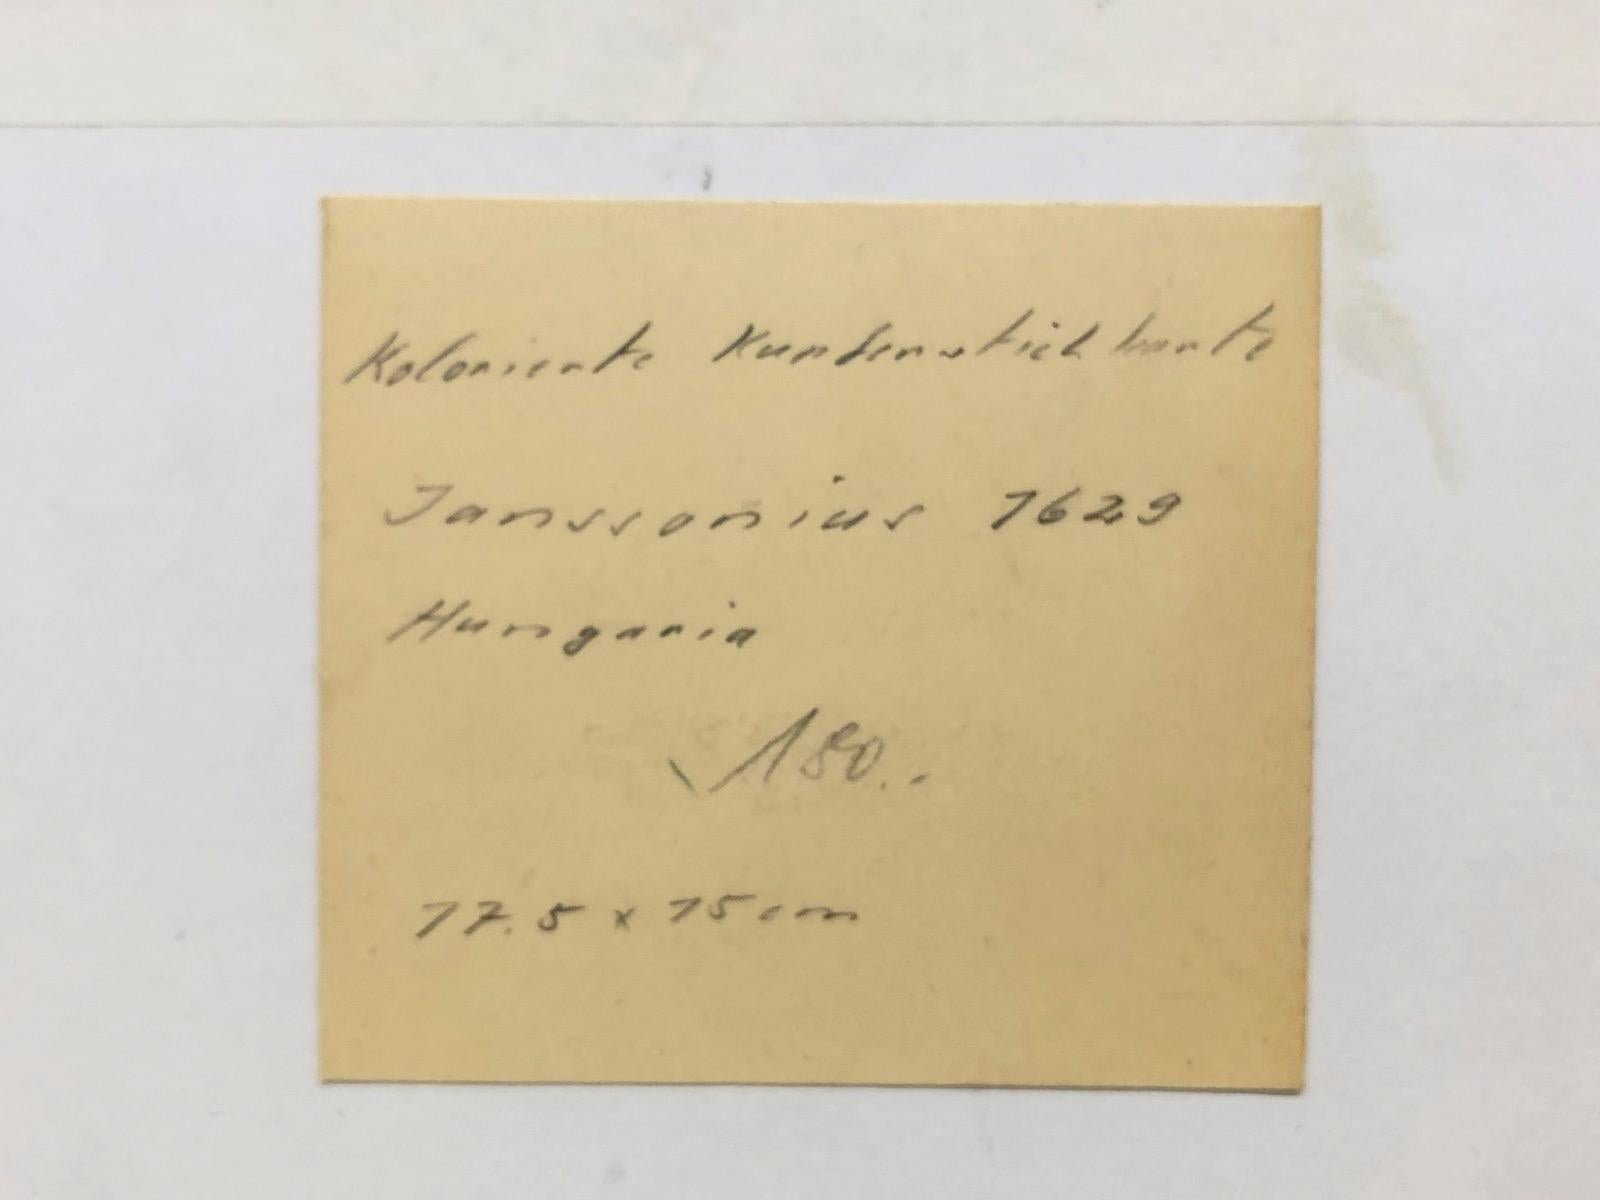 Kolorierte Kupferstichkarte
Janssonius 1629
Hungaria
180.-
17.5 x 15 cm